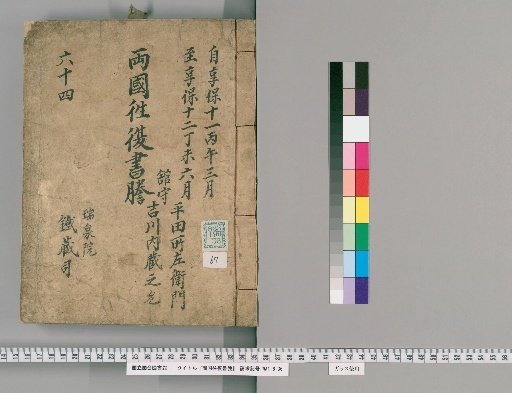 自享保十一丙午三月
至享保十二丁未六月
両國往復書謄
館守
平田所左衛門
吉川内蔵之允
瑞泉院
鐵蔵司
六十四
67
ガラス使用